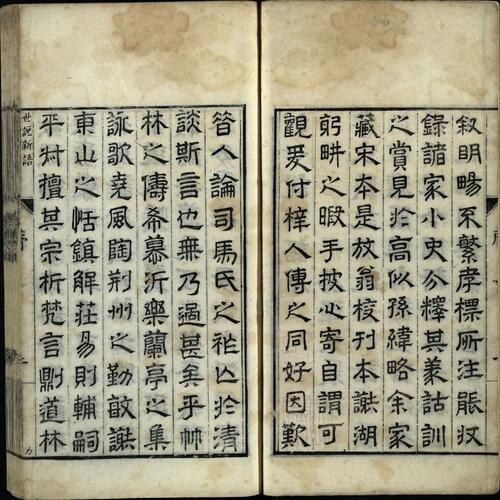 叙明暢不繁孝標所注能收
錄諸家小史分釋其義詁訓
之賞見於高似孫緯略余家
藏宋本是放翁校刊本謝湖
躬畊之暇手披心寄自謂可
觀爰付梓人傳之同好因歎
昔人論司馬氏之祚亡於清
談斯言也無乃過甚矣乎竹
林之儔希慕沂樂蘭亭之集
詠歌堯風陶荊州之勤敏謝
東山之恬鎮解莊易則輔嗣
平叔擅其宗析梵言則道林
世說新語
序